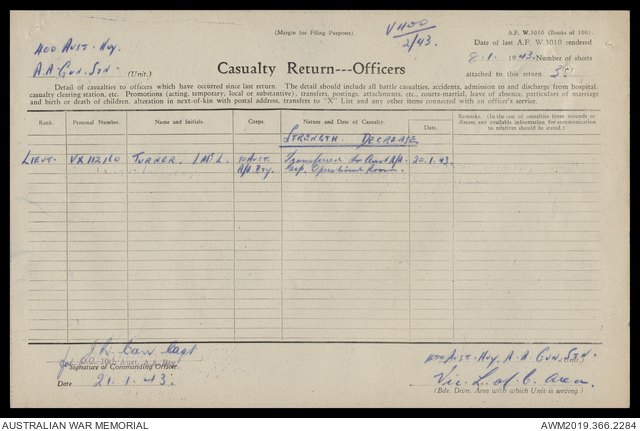 (Margin for Filing Purposes)
V400
2/43.
A.F. W.3010 (Books of 100).
400 Aust. Hvy.
A.A. Gun. Stn.
(Unit.)
Date of last A.F. W.3010 rendered
8-1-1943. Number of sheets
attached to this return
Casualty Return---Officers
Detail of casualties to officers which have occurred since last return. The detail should include all battle casualties, accidents, admission to and discharge from hospital,
casualty clearing station, etc. Promotions (acting, temporary, local or substantive), transfers, postings, attachments, etc., courts-martial, leave of absence, particulars of marriage
and birth or death of children, alteration in next-of-kin with postal address, transfers to "X" List and any other items connected with an officer's service.
Rank. Personal Number. Name and Initials. Corps. Nature and Date of Casualty. Date. Remarks. (In the case of casualties from wounds or
disease any available information for communication
to relatives should be stated.)
STRENGTH DECREASE
LIEUT. VX112160 TURNER, IAN L. 10 Aust. Transferred to Aust A/A 20.1.43.
A/A Bty. Gp. Operational Room.
J L Carr Capt
for O.C. 10th Aust. A.A. Bty.
Signature of Commanding Officer.
Date 21.1.43.
400 Aust. Hvy. A.A Gun. Stn.
Vic. L. of C. Area.
(Bde. Divn. Area with which Unit is serving.)
AUSTRALIAN WAR MEMORIAL
AWM2019.366.2284